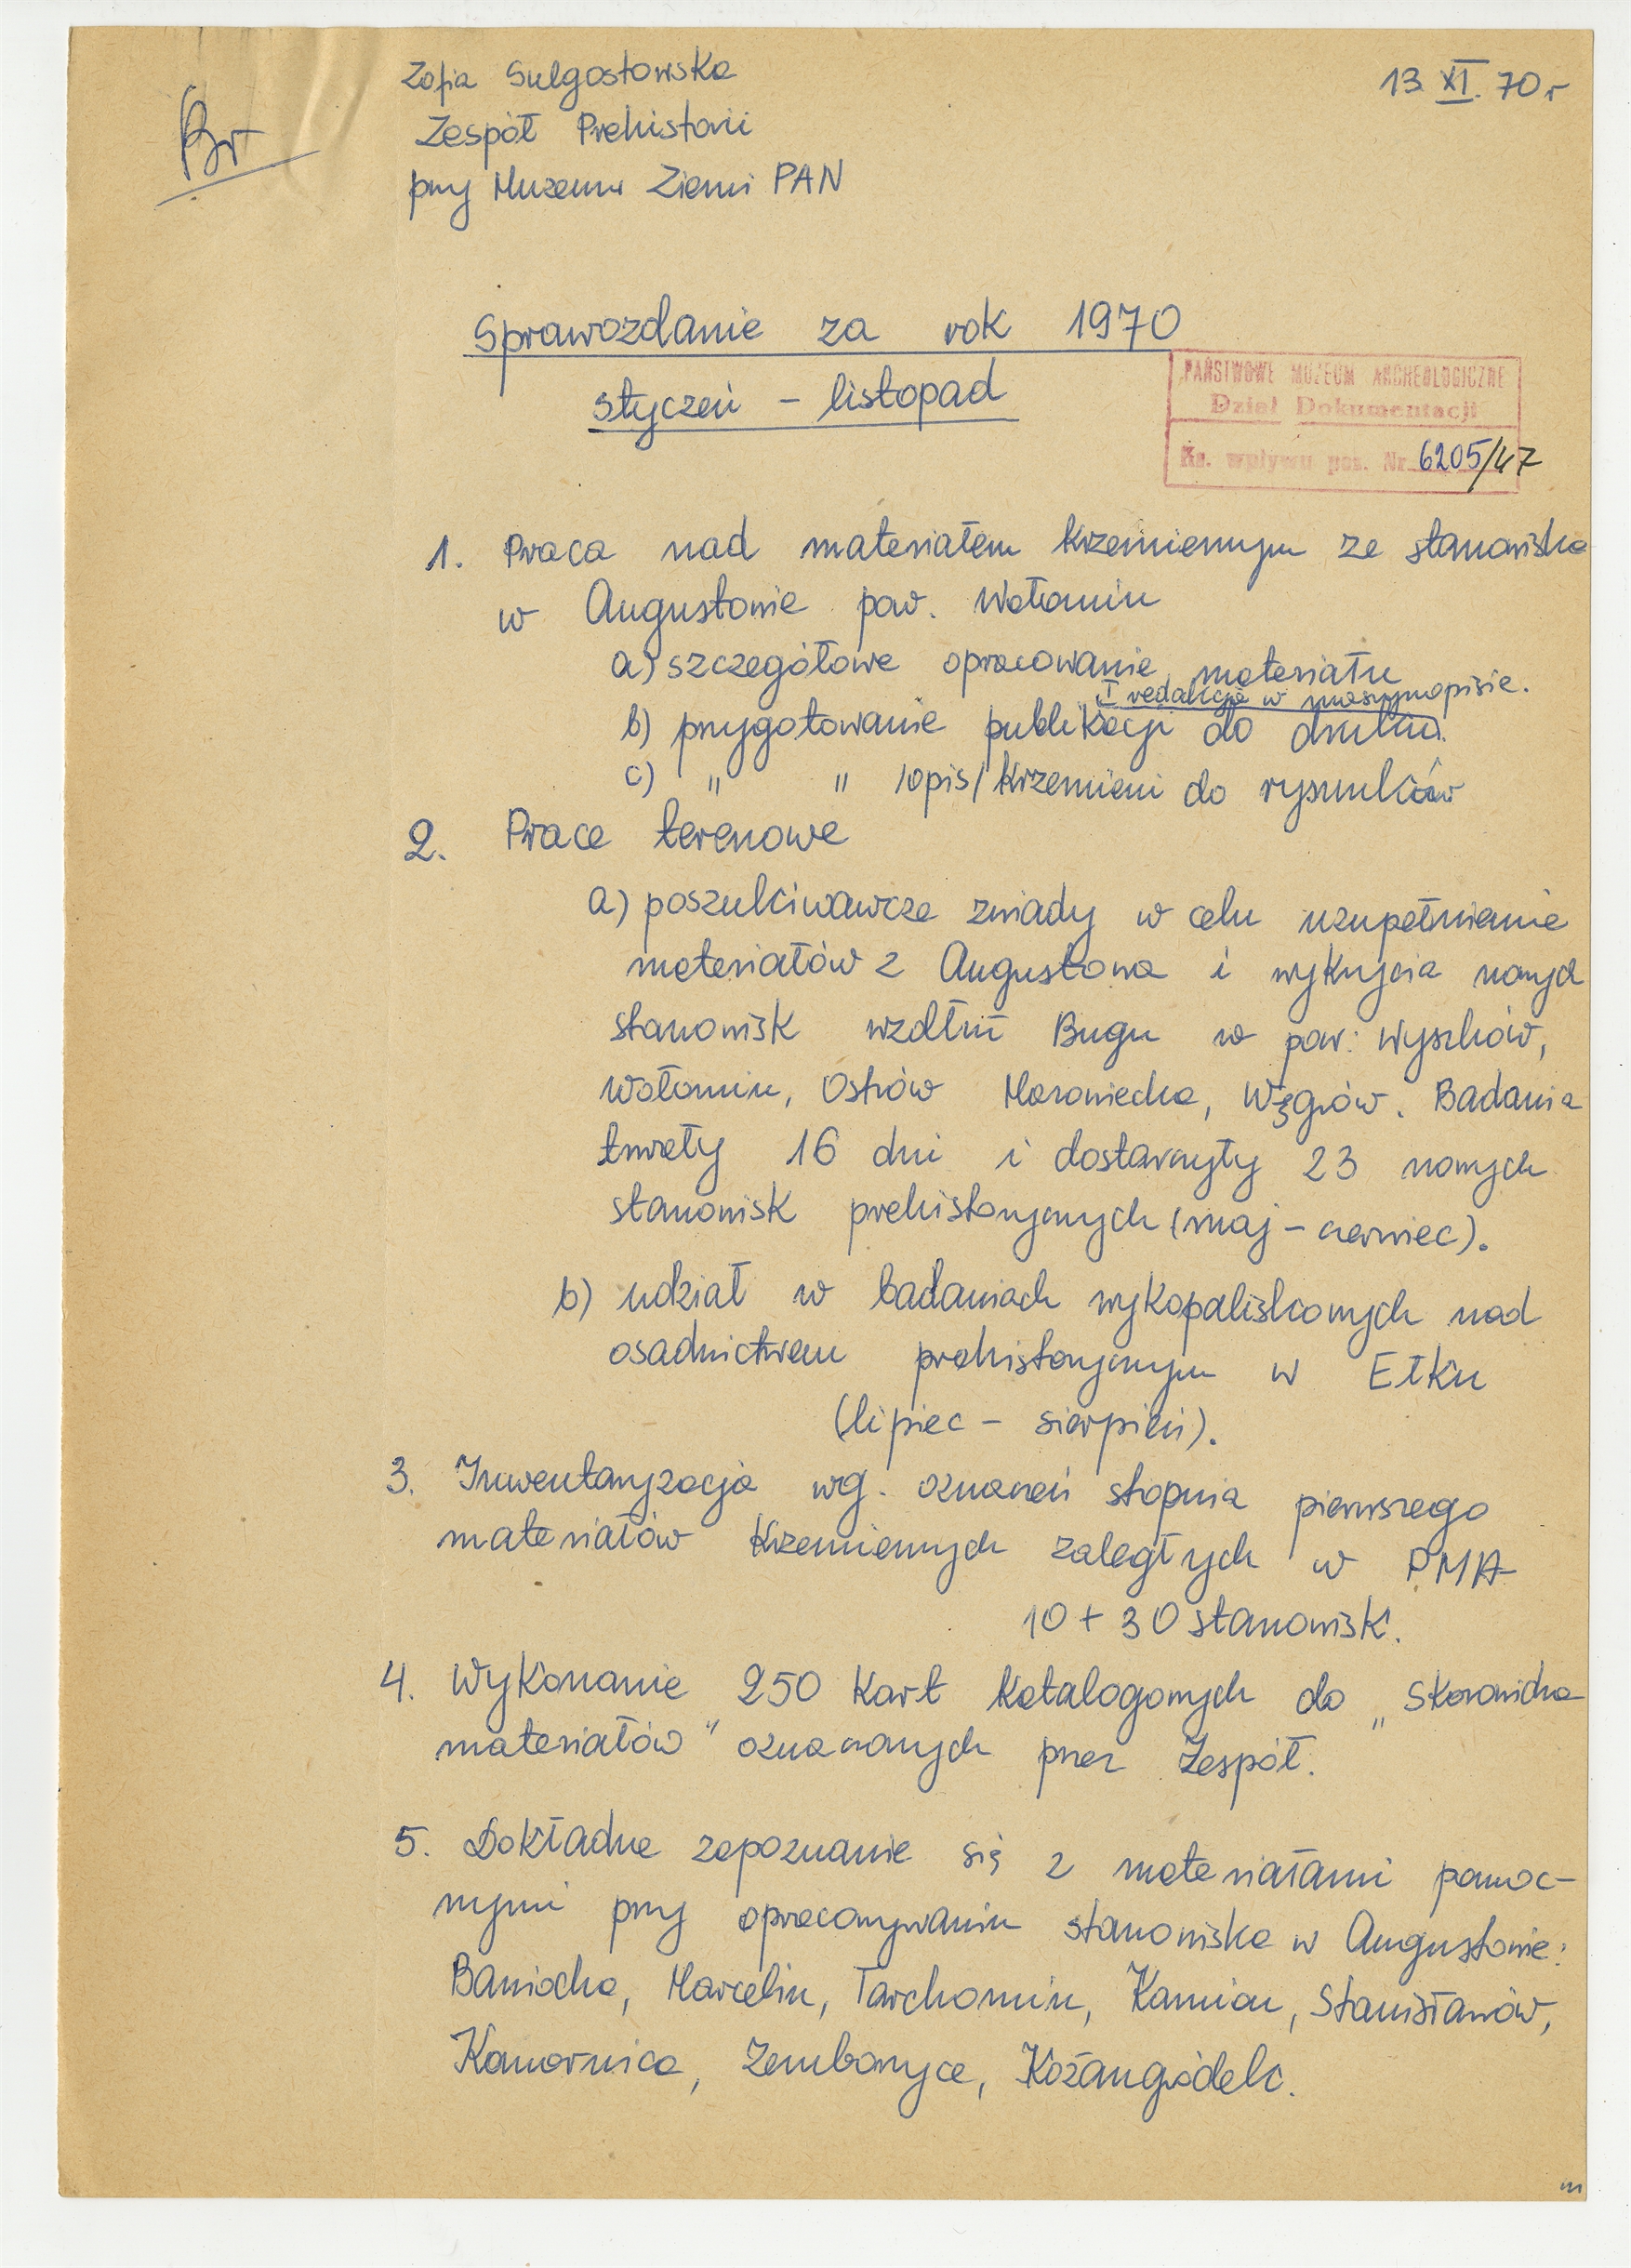 Zofia Sulgostowska
13 XI. 70 r
Br
Zespół Prehistorii
przy Muzeum Ziemi PAN
Sprawozdanie za rok 1970
styczeń – listopad
PAŃSTWOWE MUZEUM ARCHEOLOGICZNE
Dział Dokumentacji
Ks. wpływu poz. Nr 6205/47
1. Praca nad materiałem krzemiennym ze stanowiska
w Augustowie pow. Wołomin
a) szczegółowe opracowanie materiału
I redakcja w maszynopisie.
b) przygotowanie publikacji do druku.
c) " " /opis/ krzemieni do rysunków
2. Prace terenowe
a) poszukiwawcze zwiady w celu uzupełnienie
materiałów z Augustowa i wykrycia nowych
stanowisk wzdłuż Bugu w pow: Wyszków,
Wołomin, Ostrów Mazowiecka, Węgrów. Badania
trwały 16 dni i dostarczyły 23 nowych
stanowisk prehistorycznych (maj – czerwiec).
b) udział w badaniach wykopaliskowych nad
osadnictwem prehistorycznym w Ełku
(lipiec – sierpień).
3. Inwentaryzacja wg. oznaczeń stopnia pierwszego
materiałów krzemiennych zaległych w PMA
10 + 30 stanowisk.
4. Wykonanie 250 kart katalogowych do „Skorowidza
materiałów" oznaczonych przez Zespół.
5. Dokładne zapoznanie się z materiałami pomoc-
nymi przy opracowywaniu stanowiska w Augustowie:
Baniocha, Marcelin, Tarchomin, Kamion, Stanisławów,
Komornica, Zemborzyce, Kożangródek.